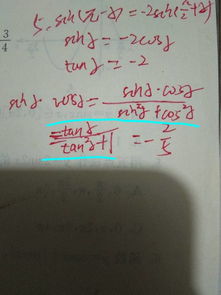 5. sin(π-α)=-2sin(π/2+α)
3/4
sinα=-2cosα
tanα=-2
sinα·cosα=sinα·cosα/sin²α+cos²α
=tanα/tan²α+1=-2/5